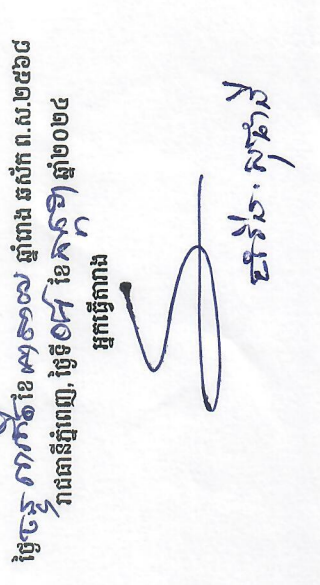 ថ្ងៃ ចន្ទ ៣កើត ខែ អាសាឍ ឆ្នាំរោង ឆស័ក ព.ស.២៥៦៨
រាជធានីភ្នំពេញ, ថ្ងៃទី ០៨ ខែ កក្កដា ឆ្នាំ២០២៤
អ្នកធ្វើតារាង